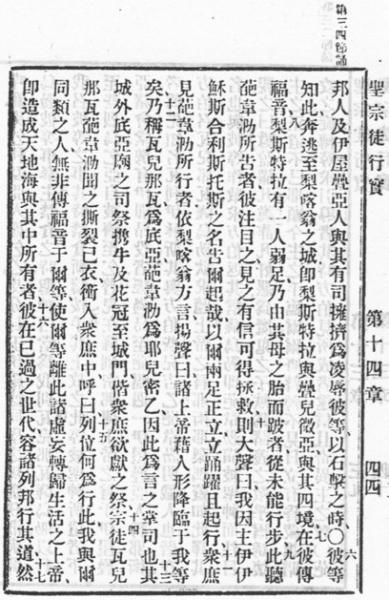 聖宗徒行實 第十四章 四四
邦人及伊屋疊亞人與其有司擁擠爲凌辱彼等以石擊之時○六彼等
知此奔逃至梨喀翁之城卽梨斯特拉與疊兒微亞與其四境七在彼傳
福音八梨斯特拉有一人弱足乃由其母之胎而跛者從未能行步九此聽
葩韋泐所告者彼注目之見之有信可得拯救十則大聲曰我因主伊伊
穌斯合利斯托斯之名告爾起哉以爾兩足正立立踊躍且起行十一衆庶
見葩韋泐所行者依梨喀翁方言揚聲曰諸上帝藉人形降臨于我等
矣十二乃稱瓦兒那瓦爲底亞葩韋泐爲耶兒密乙因此爲言之宰司也十三其
城外底亞廟之司祭携牛及花冠至城門偕衆庶欲獻之祭十四宗徒瓦兒
那瓦葩韋泐聞之撕裂己衣衝入衆庶中呼曰十五列位何爲行此我與爾
同類之人無非傳福音于爾等使爾等離此諸虛妄轉歸生活之上帝
卽造成天地海與其中所有者十六彼在已過之世代容諸列邦行其道十七然